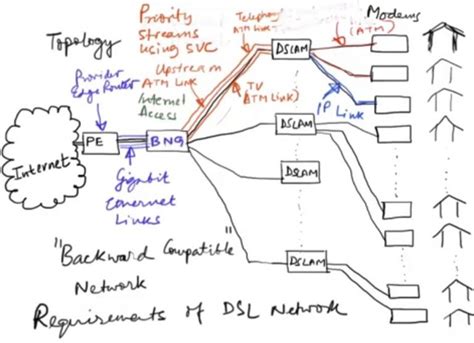 Topology
Priority
Streams
Using SVC
Telephony
ATM Link
Modems
(ATM)
Provider
Edge Router
Upstream
ATM Link
Internet
Access
TV
ATM Link
DSLAM
IP Link
Internet
PE
BNG
DSLAM
Gigabit
Ethernet
Links
DSLAM
"Backward Compatible"
Network
DSLAM
Requirements of DSL Network